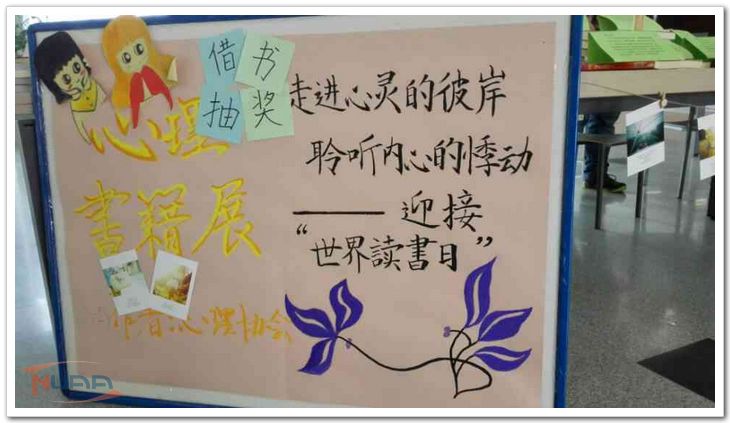 借书
抽奖
心理
書籍展
心理协会
走进心灵的彼岸
聆听内心的悸动
—— 迎接
“世界读書日”
NUAA